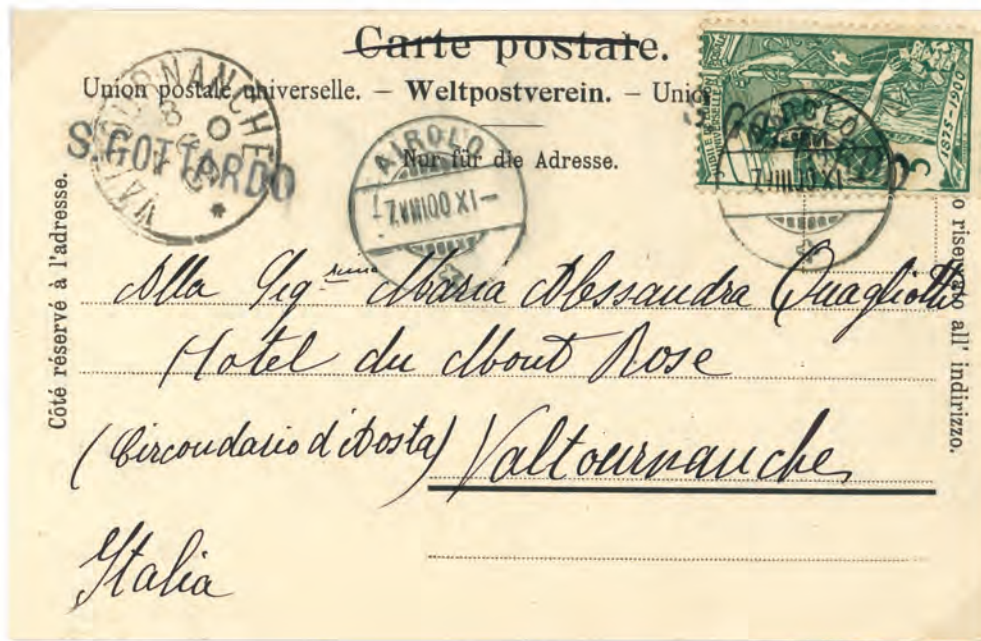 Carte postale.
Union postale universelle. – Weltpostverein. – Unio
Nur für die Adresse.
VALTOURNANCHE
S. GOTTARDO
AIROLO
7.VIII.00.XI–
AIROLO
7.VIII.00.XI
1875-1900
Côté réservé à l'adresse.
o riservato all' indirizzo.
Alla Sigᵐᵃ Maria Alessandra Quagliotti
Hotel du Mont Rose
(Circondario d'Aosta) Valtournanche
Italia